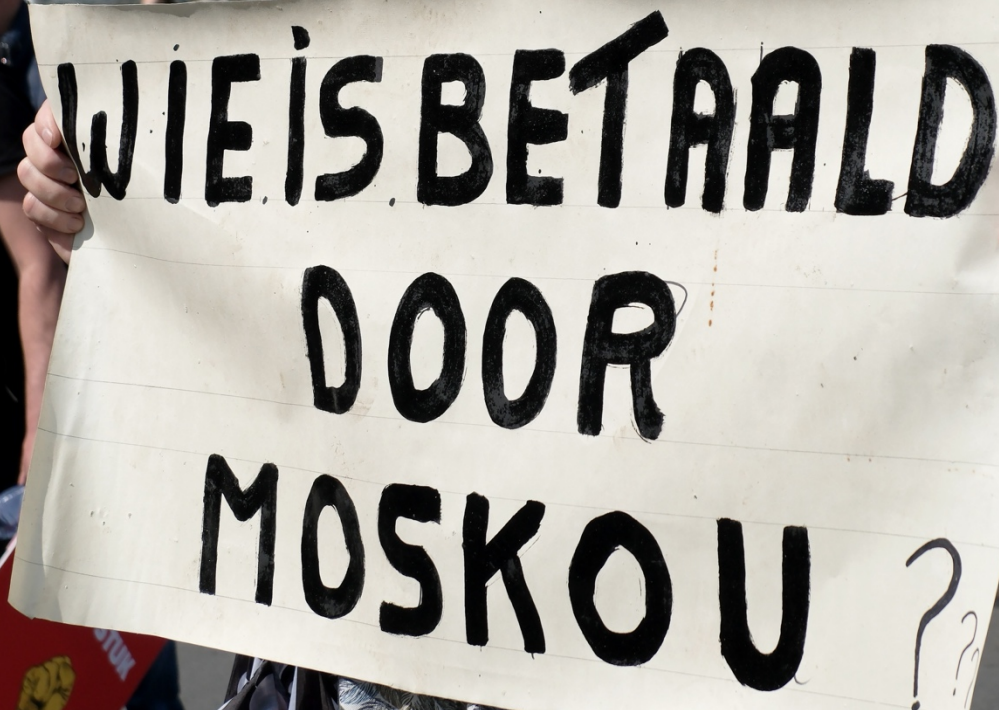 WIE IS BETAALD
DOOR
MOSKOU ??
STUK